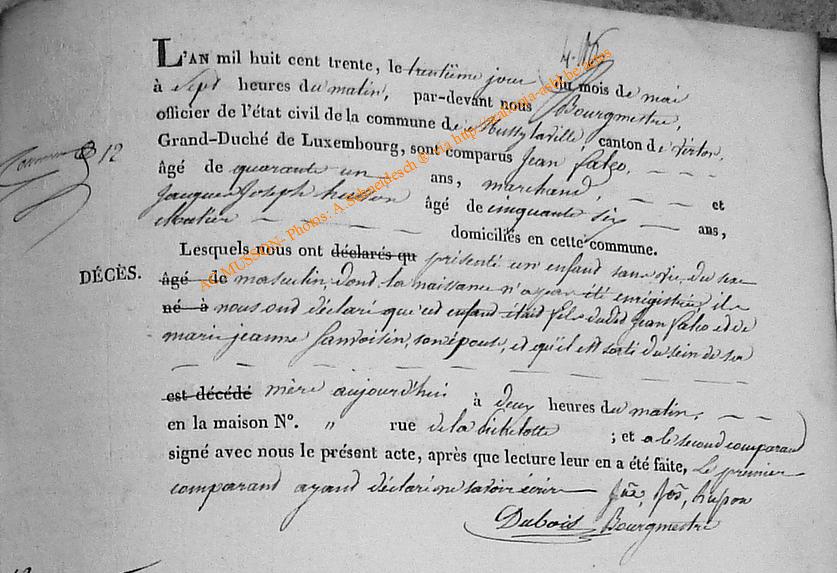 L'AN mil huit cent trente, le trentième jour du mois de mai
à sept heures du matin, par-devant nous Bourgmestre,
officier de l'état civil de la commune de Mussy la ville, canton de Virton,
Grand-Duché de Luxembourg, sont comparus Jean
12
âgé de quarante un ans, marchand, et
Jacques Joseph husson âgé de cinquante six ans,
domiciliés en cette commune.
DÉCÈS.
Lesquels nous ont déclarés qu présenté un enfant sans vie du sexe
âgé de masculin, dont la naissance n'a pas été enregistrée, ils
né à nous ont déclaré que cet enfant était fils dudit Jean et de
marie jeanne son épouse, et qu'il est sorti du sein de sa
est décédé mère aujourd'hui à deux heures du matin,
en la maison N°. " rue de la ; et a le second comparant
signé avec nous le présent acte, après que lecture leur en a été faite, le premier
comparant ayant déclaré ne savoir écrire husson
Dubois Bourgmestre
AC MUSSON- Photos: A. Schneidesch @ via http://